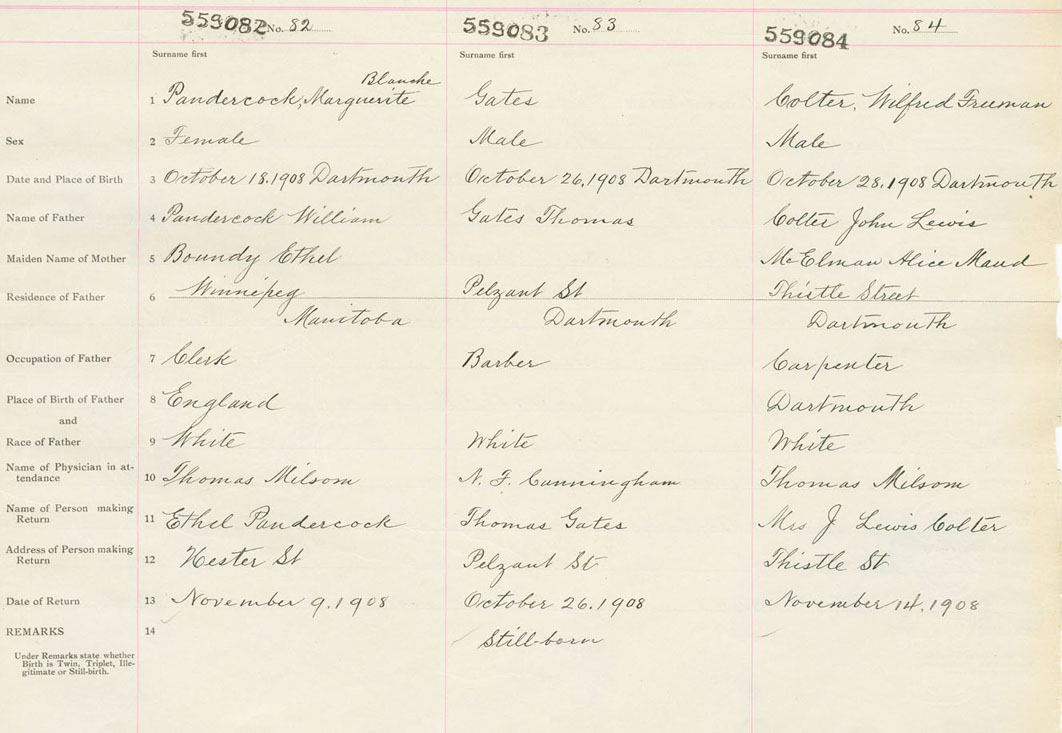 559082 No. 82 559083 No. 83 559084 No. 84
Surname first Surname first Surname first
Blanche
Name 1 Pandercock, Marguerite Gates Colter, Wilfred Freeman
Sex 2 Female Male Male
Date and Place of Birth 3 October 18.1908 Dartmouth October 26,1908 Dartmouth October 28.1908 Dartmouth
Name of Father 4 Pandercock William Gates Thomas Colter John Lewis
Maiden Name of Mother 5 Boundy Ethel McElman Alice Maud
Residence of Father 6 Winnipeg Pelzant St Thistle Street
Manitoba Dartmouth Dartmouth
Occupation of Father 7 Clerk Barber Carpenter
Place of Birth of Father 8 England Dartmouth
and
Race of Father 9 White White White
Name of Physician in at-
tendance 10 Thomas Milsom N. F. Cunningham Thomas Milsom
Name of Person making
Return 11 Ethel Pandercock Thomas Gates Mrs J Lewis Colter
Address of Person making
Return 12 Hester St Pelzant St Thistle St
Date of Return 13 November 9.1908 October 26.1908 November 14.1908
REMARKS 14 Still-born
Under Remarks state whether
Birth is Twin, Triplet, Ille-
gitimate or Still-birth.